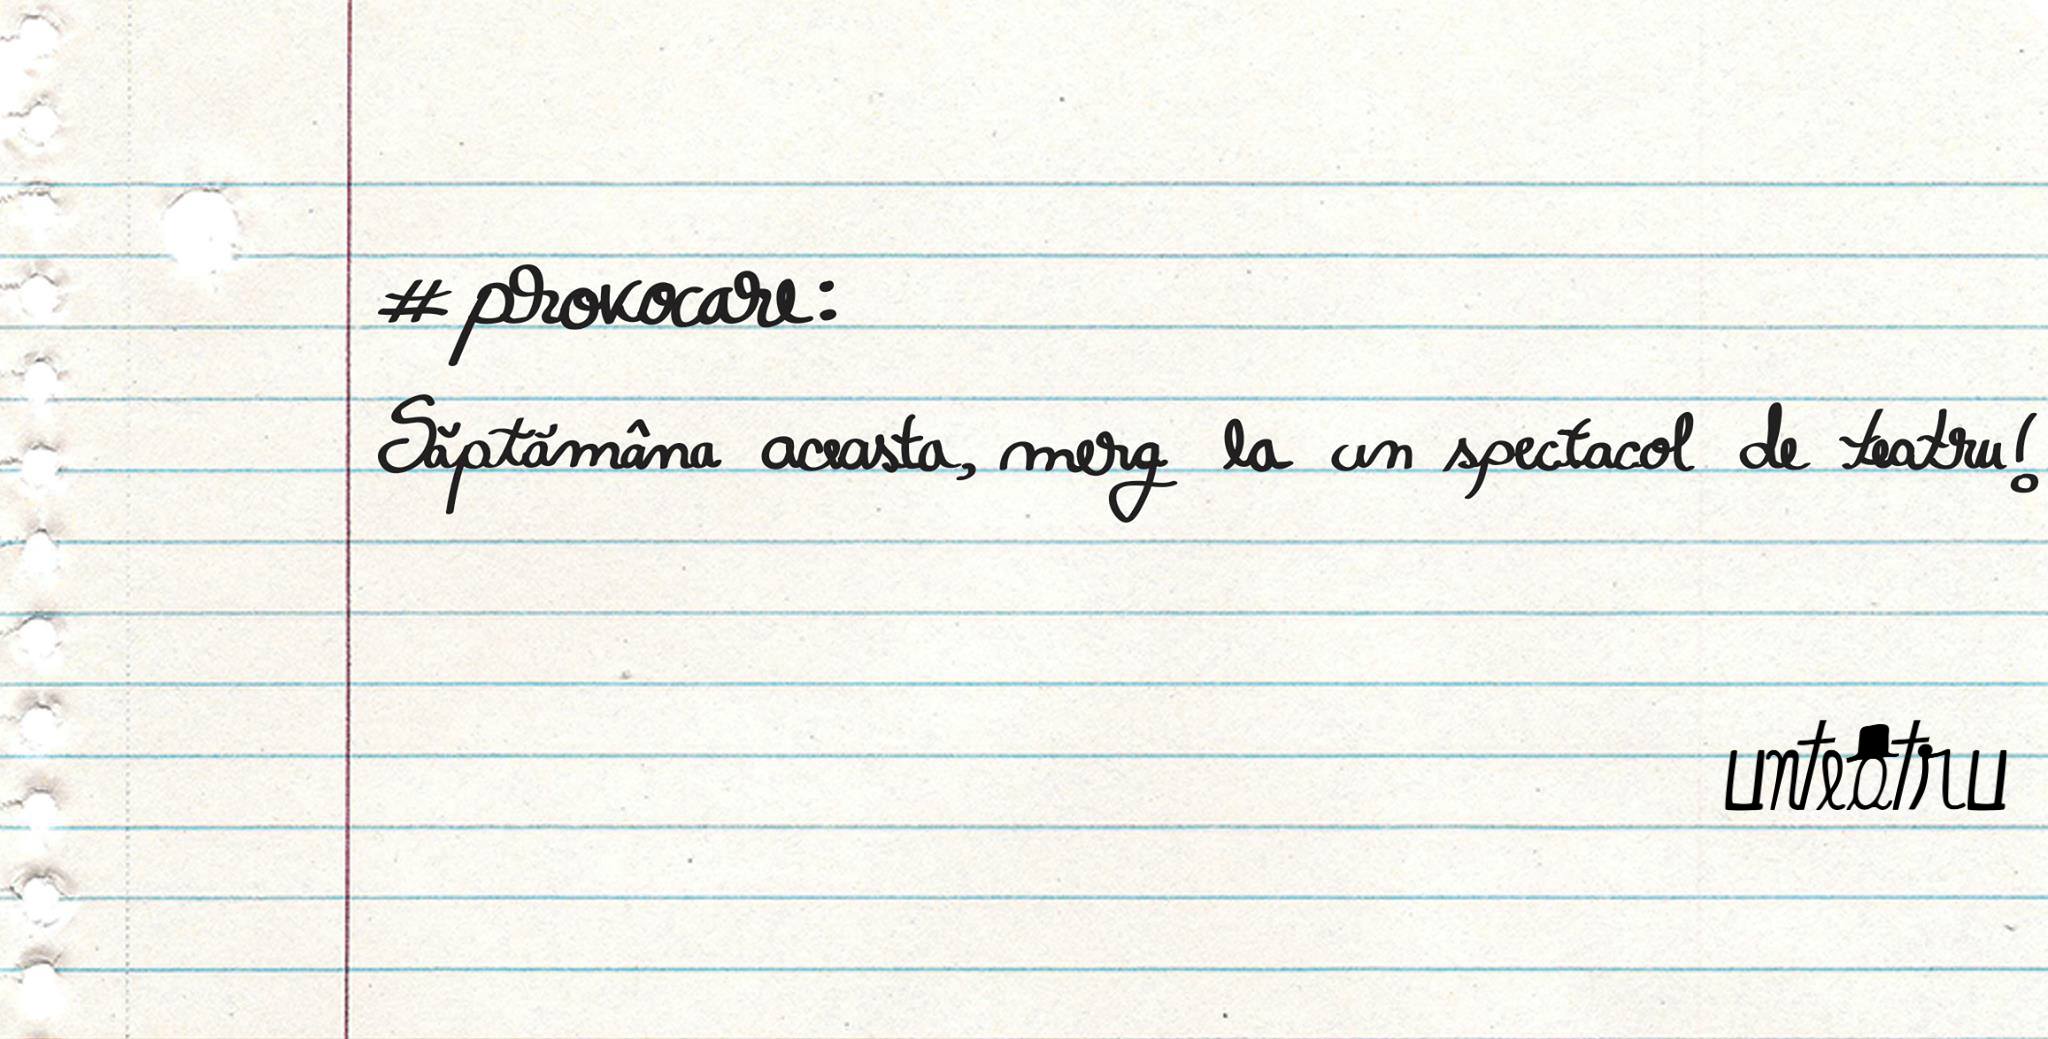 # provocare:
Săptămâna aceasta, merg la un spectacol de teatru!
unteatru